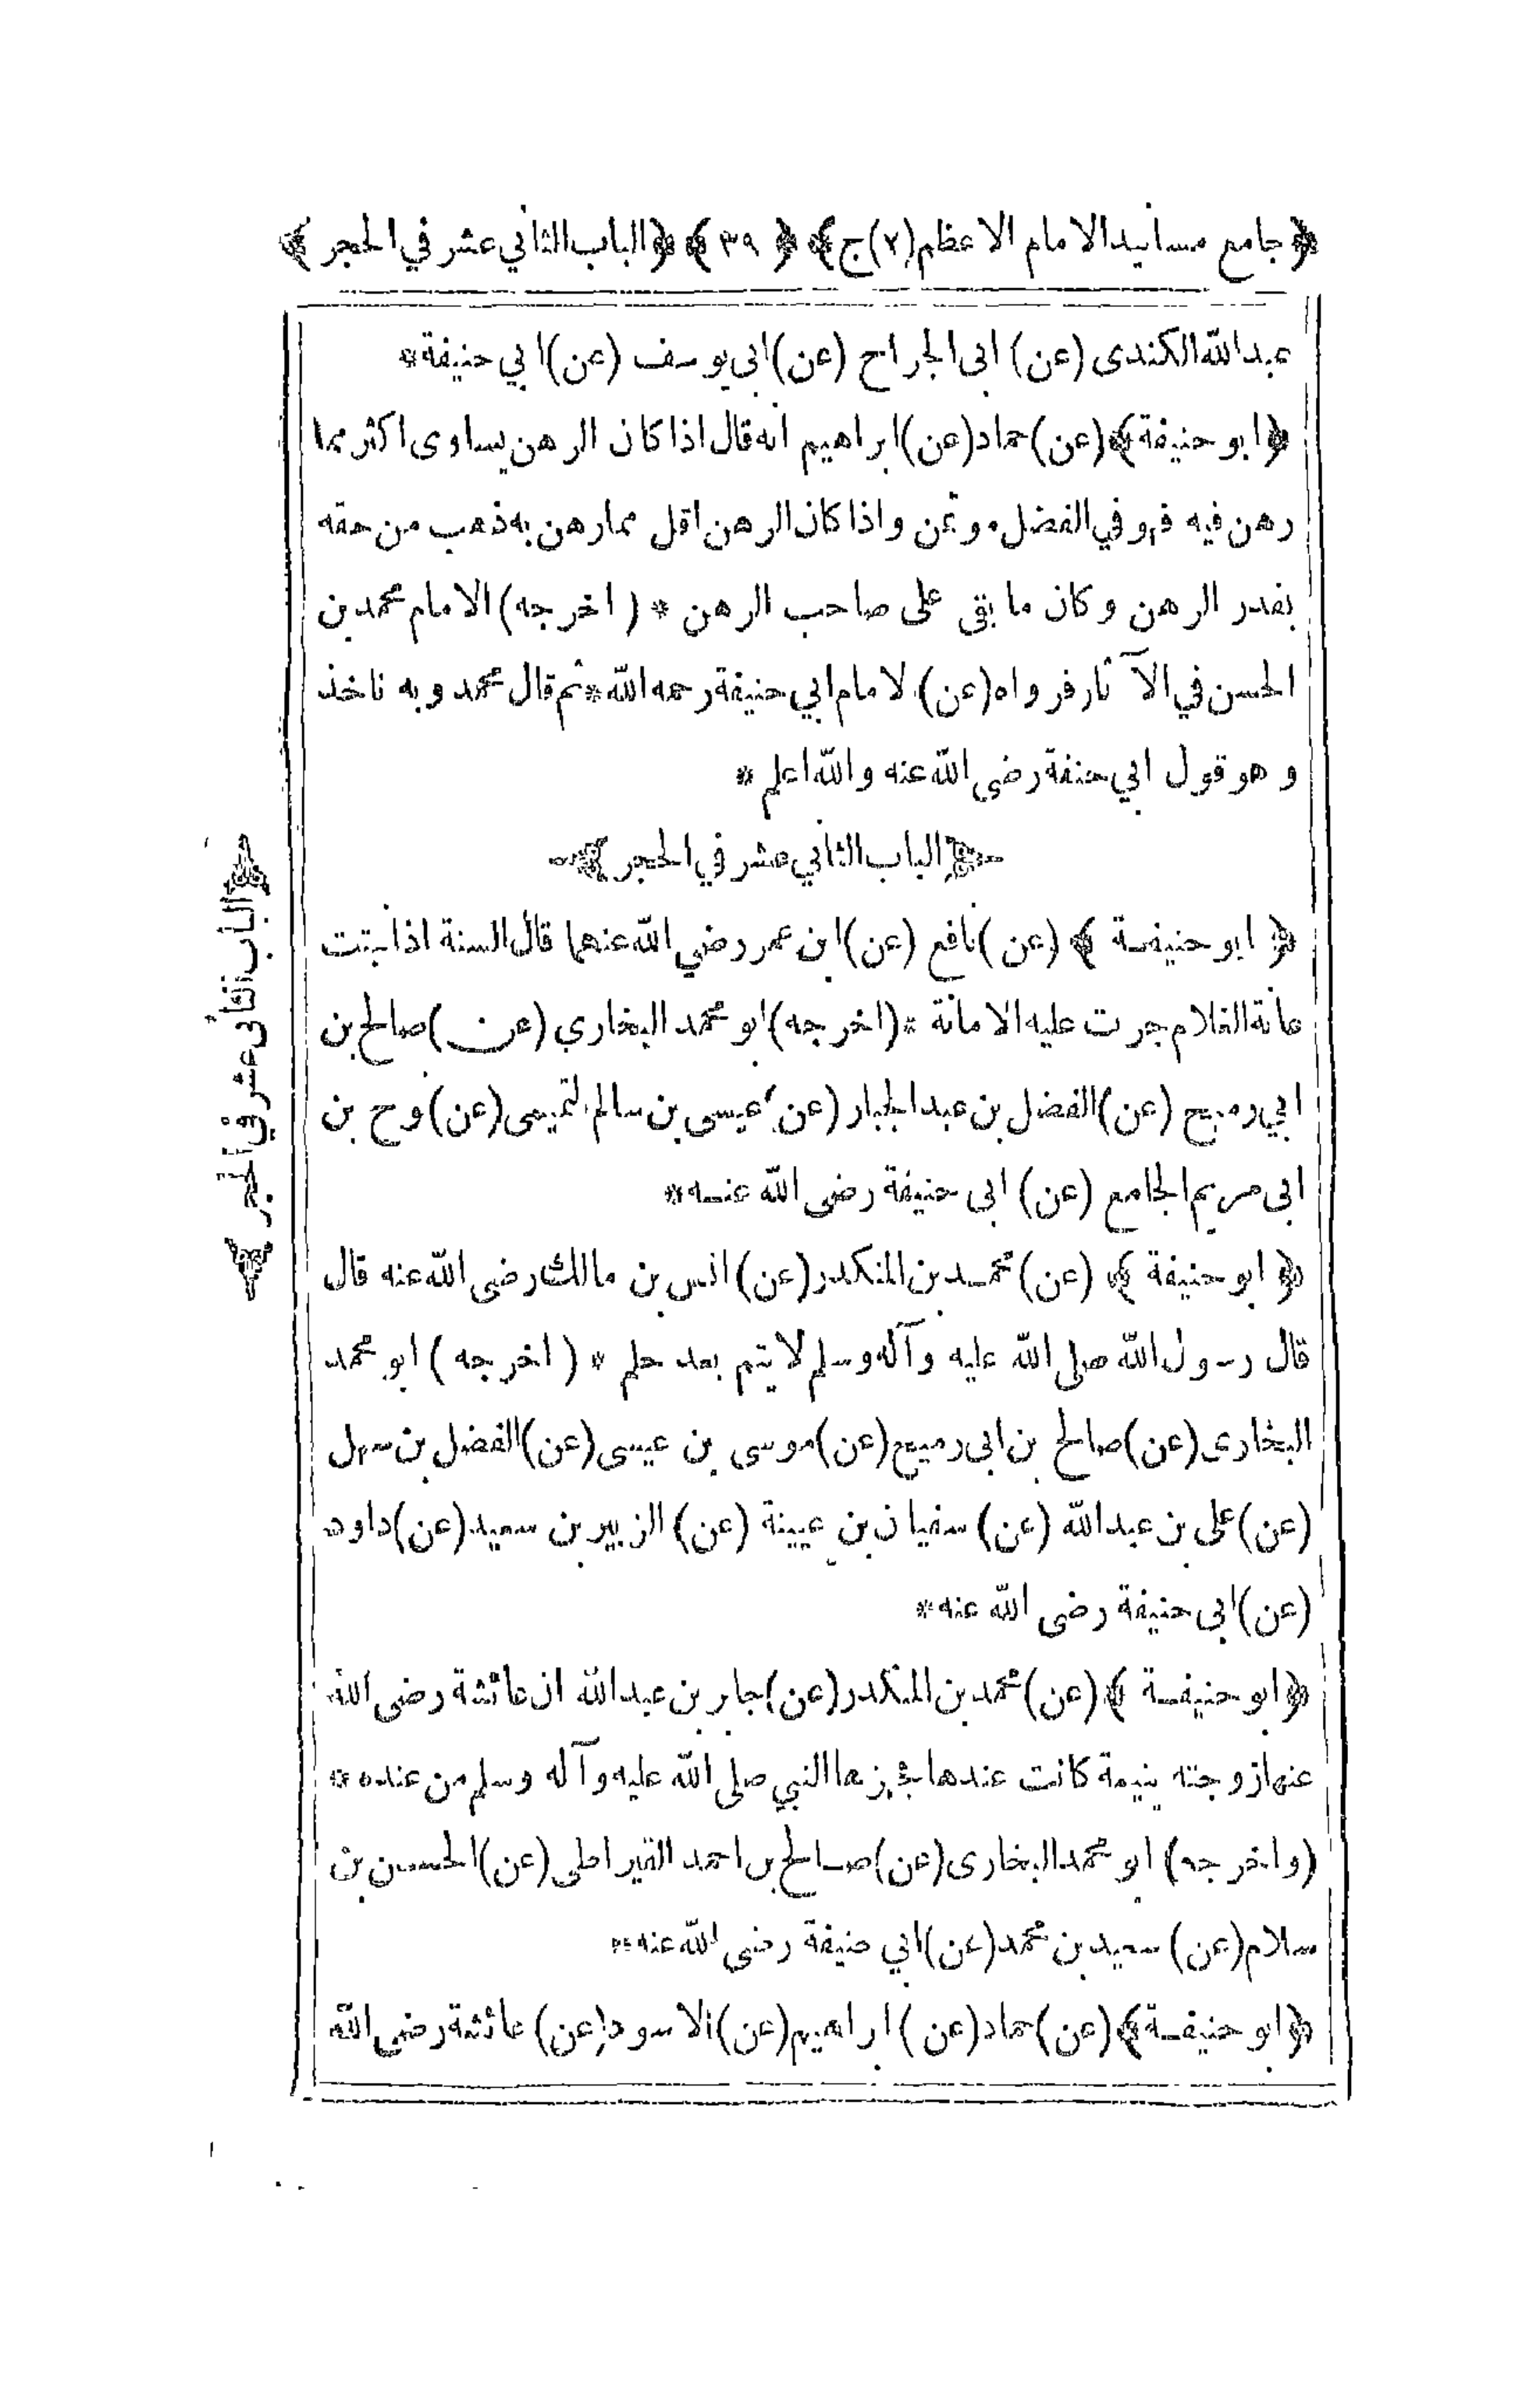 ﴿جامع مسانيد الامام الاعظم(٢)ج﴾ ﴿ ٣٩ ﴾ ﴿الباب الثاني عشر في الحجر﴾
عبدالله الكندى (عن) ابى الجراح (عن)ابى يوسف (عن)ابي حنيفة*
﴿ابو حنيفة﴾(عن)حماد(عن)ابراهيم انه قال اذا كان الرهن يساوى اكثر مما
رهن فيه فهو في الفضل موتمن واذا كان الرهن اقل ممارهن به ذهب من حقه
بقدر الرهن وكان ما بقى على صاحب الرهن * ( اخرجه)الامام محمد بن
الحسن في الآثار فرواه(عن) لامام ابي حنيفة رحمه الله*ثم قال محمد وبه ناخذ
و هو قول ابي حنفة رضى الله عنه والله اعلم *
﴿الباب الثاني عشر في الحجر﴾
﴿ ابو حنيفة ﴾ (عن)نافع (عن)ابن عمر رضي الله عنهما قال السنة اذا نبتت
عانة الغلام جرت عليه الامانة *(اخرجه)ابو محمد البخاري (عن)صالح بن
ابي رميح (عن)الفضل بن عبد الجبار (عن)عيسى بن سالم التميمى(عن)وح بن
ابى مريم الجامع (عن) ابى حنيفة رضى الله عنه*
﴿ ابو حنيفة ﴾ (عن)محمد بن المنكدر(عن)انس بن مالك رضى الله عنه قال
قال رسول الله صلى الله عليه وآله وسلم لا يتم بعد حلم * ( اخرجه ) ابو محمد
البخارى(عن)صالح بن ابى رميح(عن)موسى بن عيسى(عن)الفضل بن سهل
(عن)على بن عبدالله (عن) سفيان بن عيينة (عن) الزبير بن سعيد(عن)داود
(عن)ابى حنيفة رضى الله عنه*
﴿ابو حنيفة ﴾(عن)محمد بن المنكدر(عن)جابر بن عبدالله ان عائشة رضى الله
عنهازوجته يتيمة كانت عندها فجهزها النبي صلى الله عليه وآله وسلم من عنده*
(واخرجه) ابو محمد البخارى(عن)صالح بن احمد القيراطى(عن)الحسن بن
سلام(عن) سعيد بن محمد(عن)ابي حنيفة رضى الله عنه*
﴿ابو حنيفة﴾(عن)حماد(عن)ابراهيم(عن)الاسود(عن)عائشة رضى الله
﴿الباب الثانى عشر في الحجر﴾